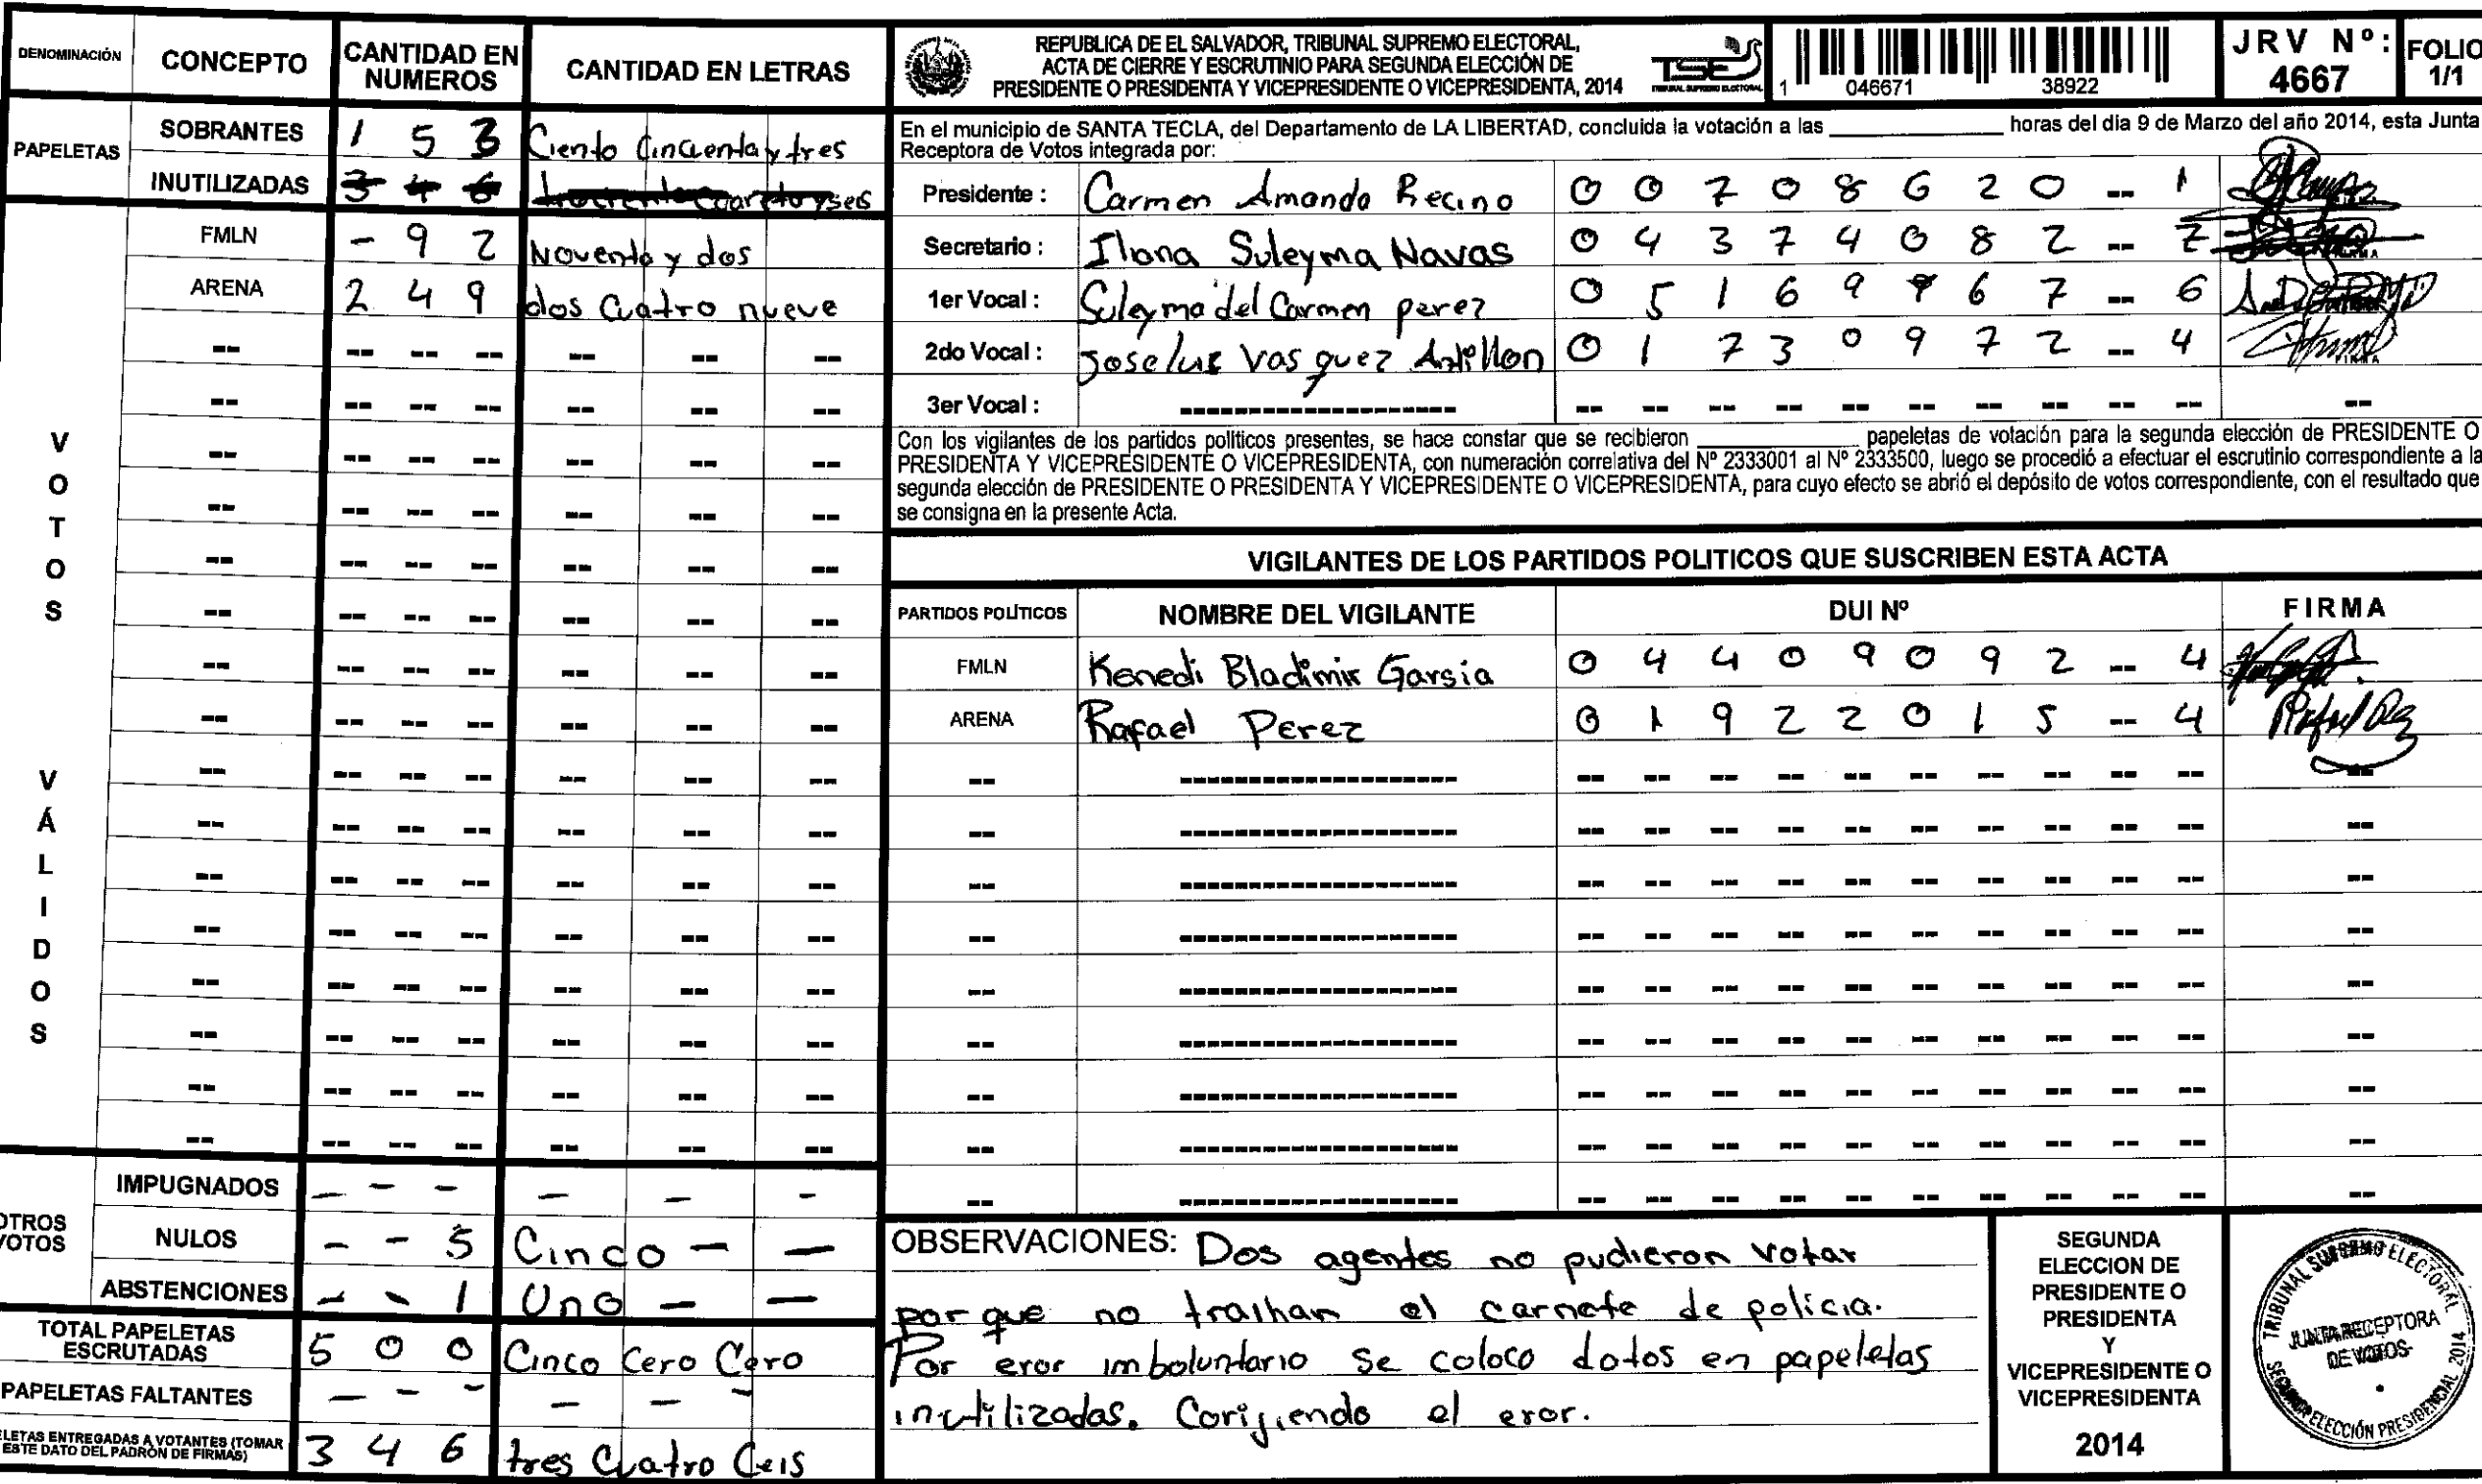 DENOMINACIÓN CONCEPTO CANTIDAD EN NUMEROS CANTIDAD EN LETRAS
PAPELETAS SOBRANTES 1 5 3 Ciento Cincuenta y tres
INUTILIZADAS 3 4 6
VOTOS VÁLIDOS
FMLN - 9 2 Noventa y dos
ARENA 2 4 9 dos Cuatro nueve
OTROS VOTOS
IMPUGNADOS - - - - - -
NULOS - - 5 Cinco - -
ABSTENCIONES - - 1 Uno - -
TOTAL PAPELETAS ESCRUTADAS 5 0 0 Cinco Cero Cero
PAPELETAS FALTANTES - - - - - -
ELETAS ENTREGADAS A VOTANTES (TOMAR ESTE DATO DEL PADRÓN DE FIRMAS) 3 4 6 tres Cuatro Ceis
REPUBLICA DE EL SALVADOR, TRIBUNAL SUPREMO ELECTORAL,
ACTA DE CIERRE Y ESCRUTINIO PARA SEGUNDA ELECCIÓN DE
PRESIDENTE O PRESIDENTA Y VICEPRESIDENTE O VICEPRESIDENTA, 2014
TSE
TRIBUNAL SUPREMO ELECTORAL
1 046671 38922
JRV Nº: 4667
FOLIO 1/1
En el municipio de SANTA TECLA, del Departamento de LA LIBERTAD, concluida la votación a las ____ horas del dia 9 de Marzo del año 2014, esta Junta
Receptora de Votos integrada por:
Presidente : Carmen Amanda Recino 0 0 7 0 8 6 2 0 -- 1
Secretario : Ilona Suleyma Navas 0 4 3 7 4 0 8 2 -- 7
1er Vocal : Suleyma del Carmen perez 0 5 1 6 9 9 6 7 -- 6
2do Vocal : Jose luis Vasquez 0 1 7 3 0 9 7 2 -- 4
3er Vocal :
Con los vigilantes de los partidos politicos presentes, se hace constar que se recibieron ____ papeletas de votación para la segunda elección de PRESIDENTE O
PRESIDENTA Y VICEPRESIDENTE O VICEPRESIDENTA, con numeración correlativa del Nº 2333001 al Nº 2333500, luego se procedió a efectuar el escrutinio correspondiente a la
segunda elección de PRESIDENTE O PRESIDENTA Y VICEPRESIDENTE O VICEPRESIDENTA, para cuyo efecto se abrió el depósito de votos correspondiente, con el resultado que
se consigna en la presente Acta.
VIGILANTES DE LOS PARTIDOS POLITICOS QUE SUSCRIBEN ESTA ACTA
PARTIDOS POLÍTICOS NOMBRE DEL VIGILANTE DUI Nº FIRMA
FMLN Kenedi Bladimir Garsia 0 4 4 0 9 0 9 2 -- 4
ARENA Rafael Perez 0 1 9 2 2 0 1 5 -- 4
OBSERVACIONES: Dos agentes no pudieron votar
por que no traihan el carnete de policia.
Por eror imboluntario se coloco datos en papeletas
inutilizadas. Corijiendo el eror.
SEGUNDA
ELECCION DE
PRESIDENTE O
PRESIDENTA
Y
VICEPRESIDENTE O
VICEPRESIDENTA
2014
TRIBUNAL SUPREMO ELECTORAL
JUNTA RECEPTORA
DE VOTOS
SEGUNDA ELECCIÓN PRESIDENCIAL 2014